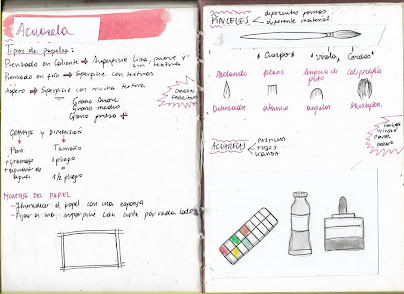 Acuarela
Tipos de papeles:
Prensado en caliente → Superficie lisa, suave y
sin textura
Prensado en frío → Superficie con textura
Áspero → Superficie con mucha textura
Grano suave
Grano medio
Grano grueso
GRAMAJE y DIMENSIÓN
Peso Tamaño
1 pliego
agua 1/2 pliego
MONTAJE DEL PAPEL
- Humedecer el papel con una esponja
- Fijar a una superficie con cinta por cada lado
PINCELES
diferentes formas
diferente material
Cuerpo Virola Cerdas
Redondo Plano Lengua de gato Caligrafía
Delineador abanico angular
ACUARELAS
PASTILLA
TUBOS
LIQUIDA